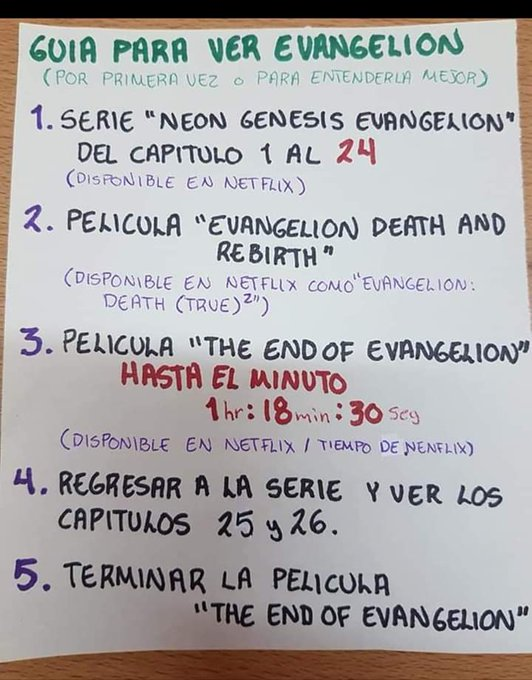 GUIA PARA VER EVANGELION
(POR PRIMERA VEZ o PARA ENTENDERLA MEJOR)
1. SERIE "NEON GENESIS EVANGELION"
DEL CAPITULO 1 AL 24
(DISPONIBLE EN NETFLIX)
2. PELICULA "EVANGELION DEATH AND
REBIRTH"
(DISPONIBLE EN NETFLIX COMO "EVANGELION:
DEATH (TRUE)²")
3. PELICULA "THE END OF EVANGELION"
HASTA EL MINUTO
1hr:18min:30 seg
(DISPONIBLE EN NETFLIX / TIEMPO DE NENFLIX)
4. REGRESAR A LA SERIE Y VER LOS
CAPITULOS 25 y 26.
5. TERMINAR LA PELICULA
"THE END OF EVANGELION"